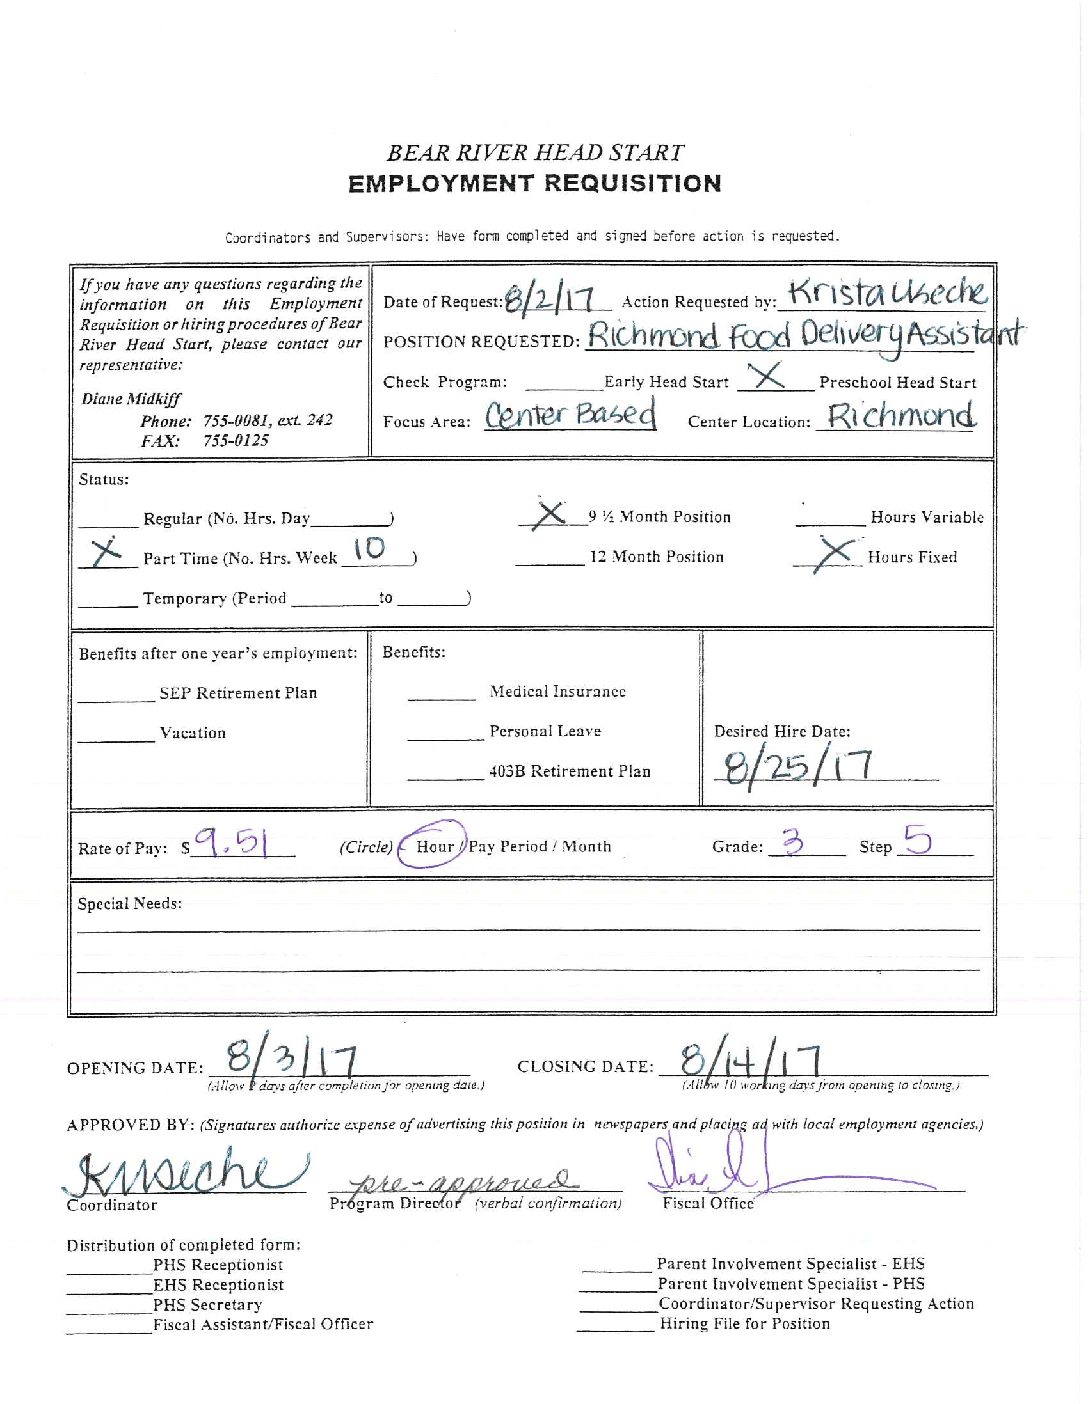 BEAR RIVER HEAD START
EMPLOYMENT REQUISITION
Coordinators and Supervisors: Have form completed and signed before action is requested.
If you have any questions regarding the
information on this Employment
Requisition or hiring procedures of Bear
River Head Start, please contact our
representative:
Diane Midkiff
Phone: 755-0081, ext. 242
FAX: 755-0125
Date of Request: 8/2/17 Action Requested by: Krista Useche
POSITION REQUESTED: Richmond Food Delivery Assistant
Check Program: ______ Early Head Start X Preschool Head Start
Focus Area: Center Based Center Location: Richmond
Status:
______ Regular (No. Hrs. Day______) X 9 ½ Month Position ______ Hours Variable
X Part Time (No. Hrs. Week 10 ) ______ 12 Month Position X Hours Fixed
______ Temporary (Period ______ to ______)
Benefits after one year's employment:
______ SEP Retirement Plan
______ Vacation
Benefits:
______ Medical Insurance
______ Personal Leave
______ 403B Retirement Plan
Desired Hire Date:
8/25/17
Rate of Pay: $ 9.51 (Circle) Hour / Pay Period / Month Grade: 3 Step 5
Special Needs:
OPENING DATE: 8/3/17 CLOSING DATE: 8/14/17
(Allow days after completion for opening date.) (Allow 10 working days from opening to closing.)
APPROVED BY: (Signatures authorize expense of advertising this position in newspapers and placing ad with local employment agencies.)
KUseche pre-approved
Coordinator Program Director (verbal confirmation) Fiscal Office
Distribution of completed form:
______ PHS Receptionist
______ EHS Receptionist
______ PHS Secretary
______ Fiscal Assistant/Fiscal Officer
______ Parent Involvement Specialist - EHS
______ Parent Involvement Specialist - PHS
______ Coordinator/Supervisor Requesting Action
______ Hiring File for Position